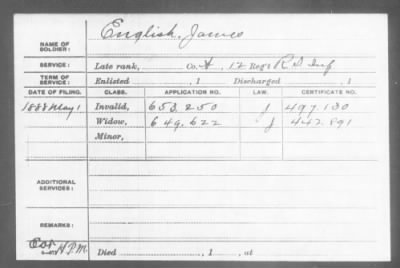 NAME OF SOLDIER: English, James
SERVICE: Late rank, Co. A, 12 Reg't R.I. Inf
TERM OF SERVICE: Enlisted , 1 Discharged , 1
DATE OF FILING. CLASS. APPLICATION NO. LAW. CERTIFICATE NO.
1888 May 1 Invalid, 653.250 J 497.130
Widow, 649.622 J 442.891
Minor,
ADDITIONAL SERVICES:
REMARKS:
Died , 1 , at